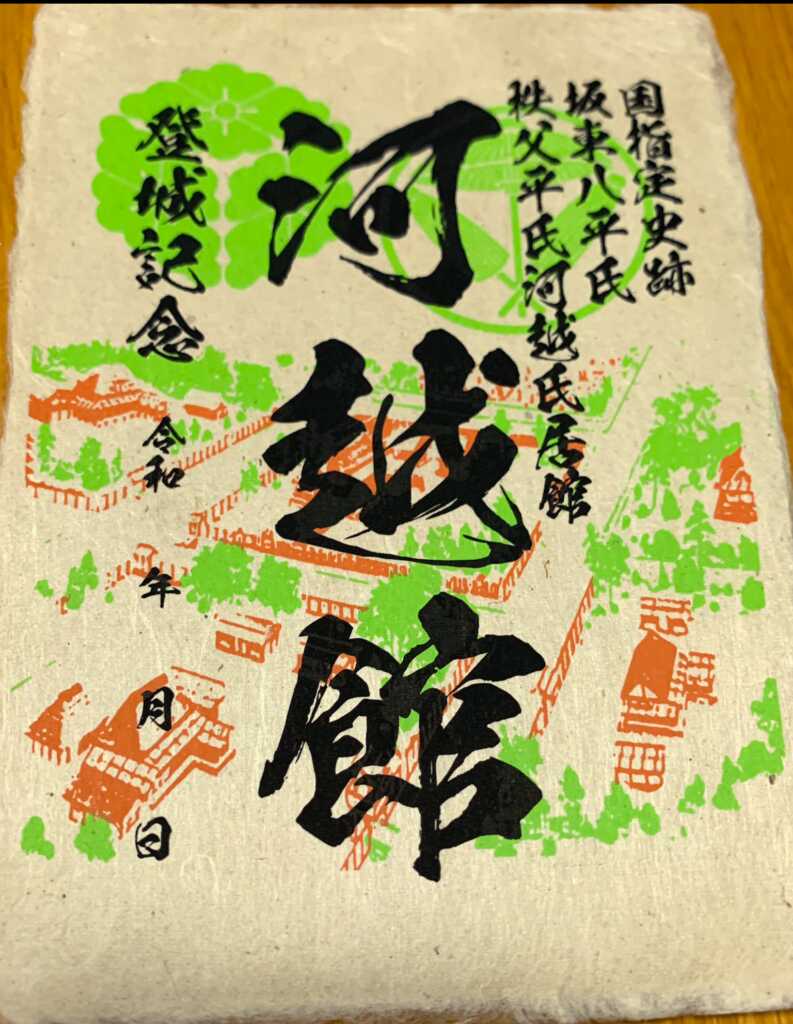 国指定史跡
坂東八平氏
秩父平氏河越氏居館
河越館
登城記念
令和 年 月 日